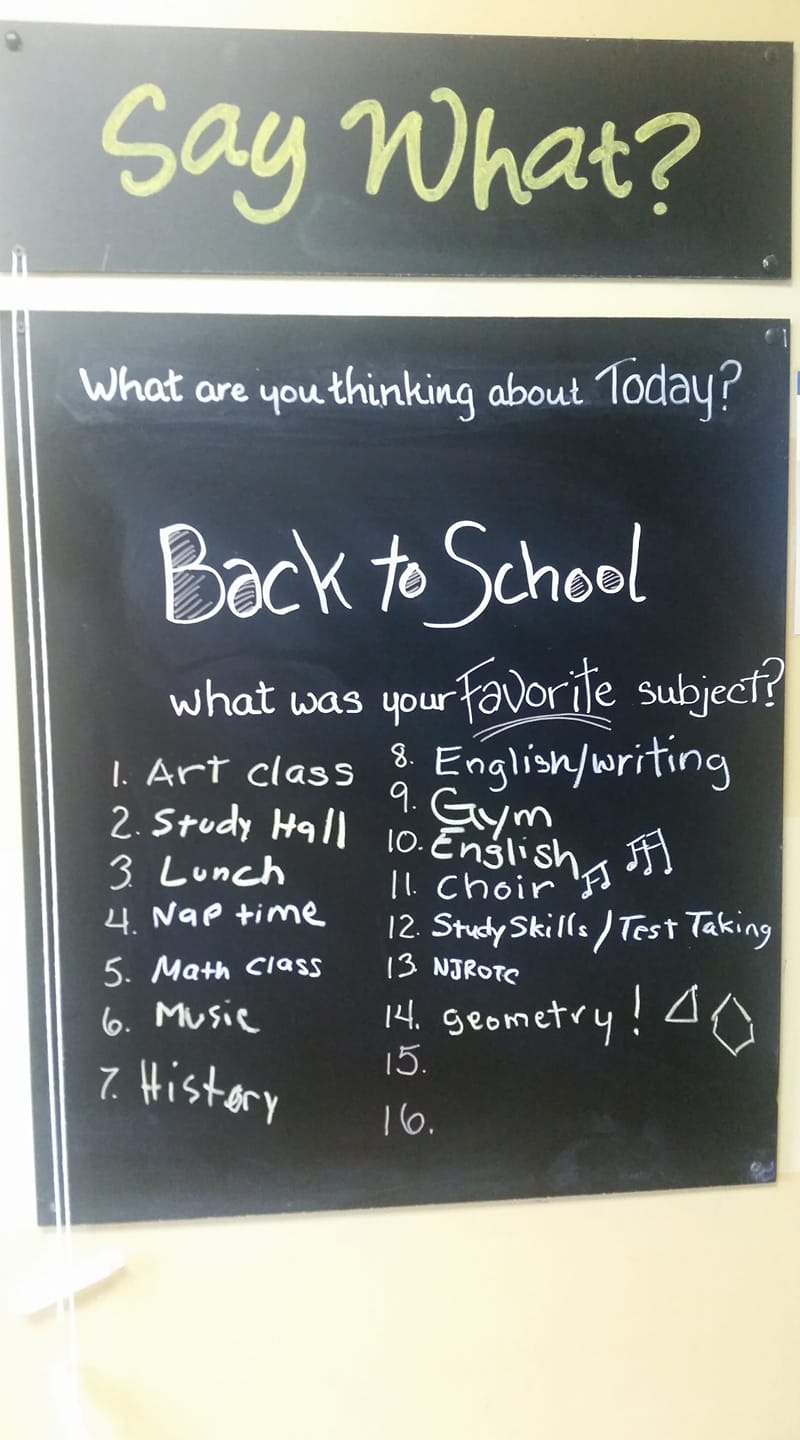 Say What?
What are you thinking about Today?
Back to School
what was your Favorite subject?
1. Art class
2. Study Hall
3. Lunch
4. Nap time
5. Math class
6. Music
7. History
8. English/writing
9. Gym
10. English
11. Choir
12. Study Skills / Test Taking
13. NJROTC
14. geometry!
15.
16.